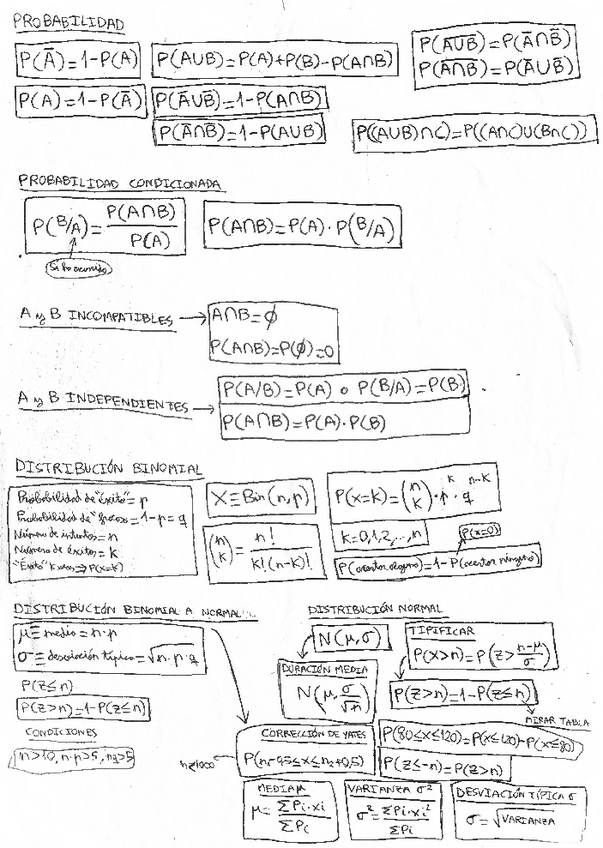 PROBABILIDAD
P(Ā)=1-P(A)
P(A∪B)=P(A)+P(B)-P(A∩B)
P(A̅∪̅B̅)=P(Ā∩B̄)
P(A̅∩̅B̅)=P(Ā∪B̄)
P(A)=1-P(Ā)
P(Ā∪B̄)=1-P(A∩B)
P(Ā∩B̄)=1-P(A∪B)
P((A∪B)∩C)=P((A∩C)∪(B∩C))
PROBABILIDAD CONDICIONADA
P(B/A)=P(A∩B)/P(A)
P(A∩B)=P(A)·P(B/A)
Si ha ocurrido
A y B INCOMPATIBLES → A∩B=∅
P(A∩B)=P(∅)=0
A y B INDEPENDIENTES → P(A/B)=P(A) o P(B/A)=P(B)
P(A∩B)=P(A)·P(B)
DISTRIBUCIÓN BINOMIAL
Probabilidad de "éxito"=p
Probabilidad de "fracaso"=1-p=q
Número de intentos=n
Número de éxitos=k
"Éxito" k veces⇒P(x=k)
X≡Bin(n,p)
(n k)=n!/k!(n-k)!
P(x=k)=(n k)·p^k·q^n-k
k=0,1,2,...,n
P(x=0)
P(acertar alguno)=1-P(acertar ninguno)
DISTRIBUCIÓN BINOMIAL A NORMAL
μ≡media=n·p
σ≡desviación típica=√n·p·q
P(Z≤n)
P(Z>n)=1-P(Z≤n)
CONDICIONES
n>10, n·p>5, nq>5
DISTRIBUCIÓN NORMAL
N(μ,σ)
DURACIÓN MEDIA
N(μ,σ/√n)
TIPIFICAR
P(X>n)=P(Z>n-μ/σ)
P(Z>n)=1-P(Z≤n)
MIRAR TABLA
CORRECCIÓN DE YATES
P(n₁-0,5≤x≤n₂+0,5)
n≥1000
P(80≤x≤120)=P(x≤120)-P(x≤80)
P(Z≤-n)=P(Z>n)
MEDIA μ
μ=ΣPi·xi/ΣPi
VARIANZA σ²
σ²=ΣPi·xi²/ΣPi
DESVIACIÓN TÍPICA σ
σ=√VARIANZA